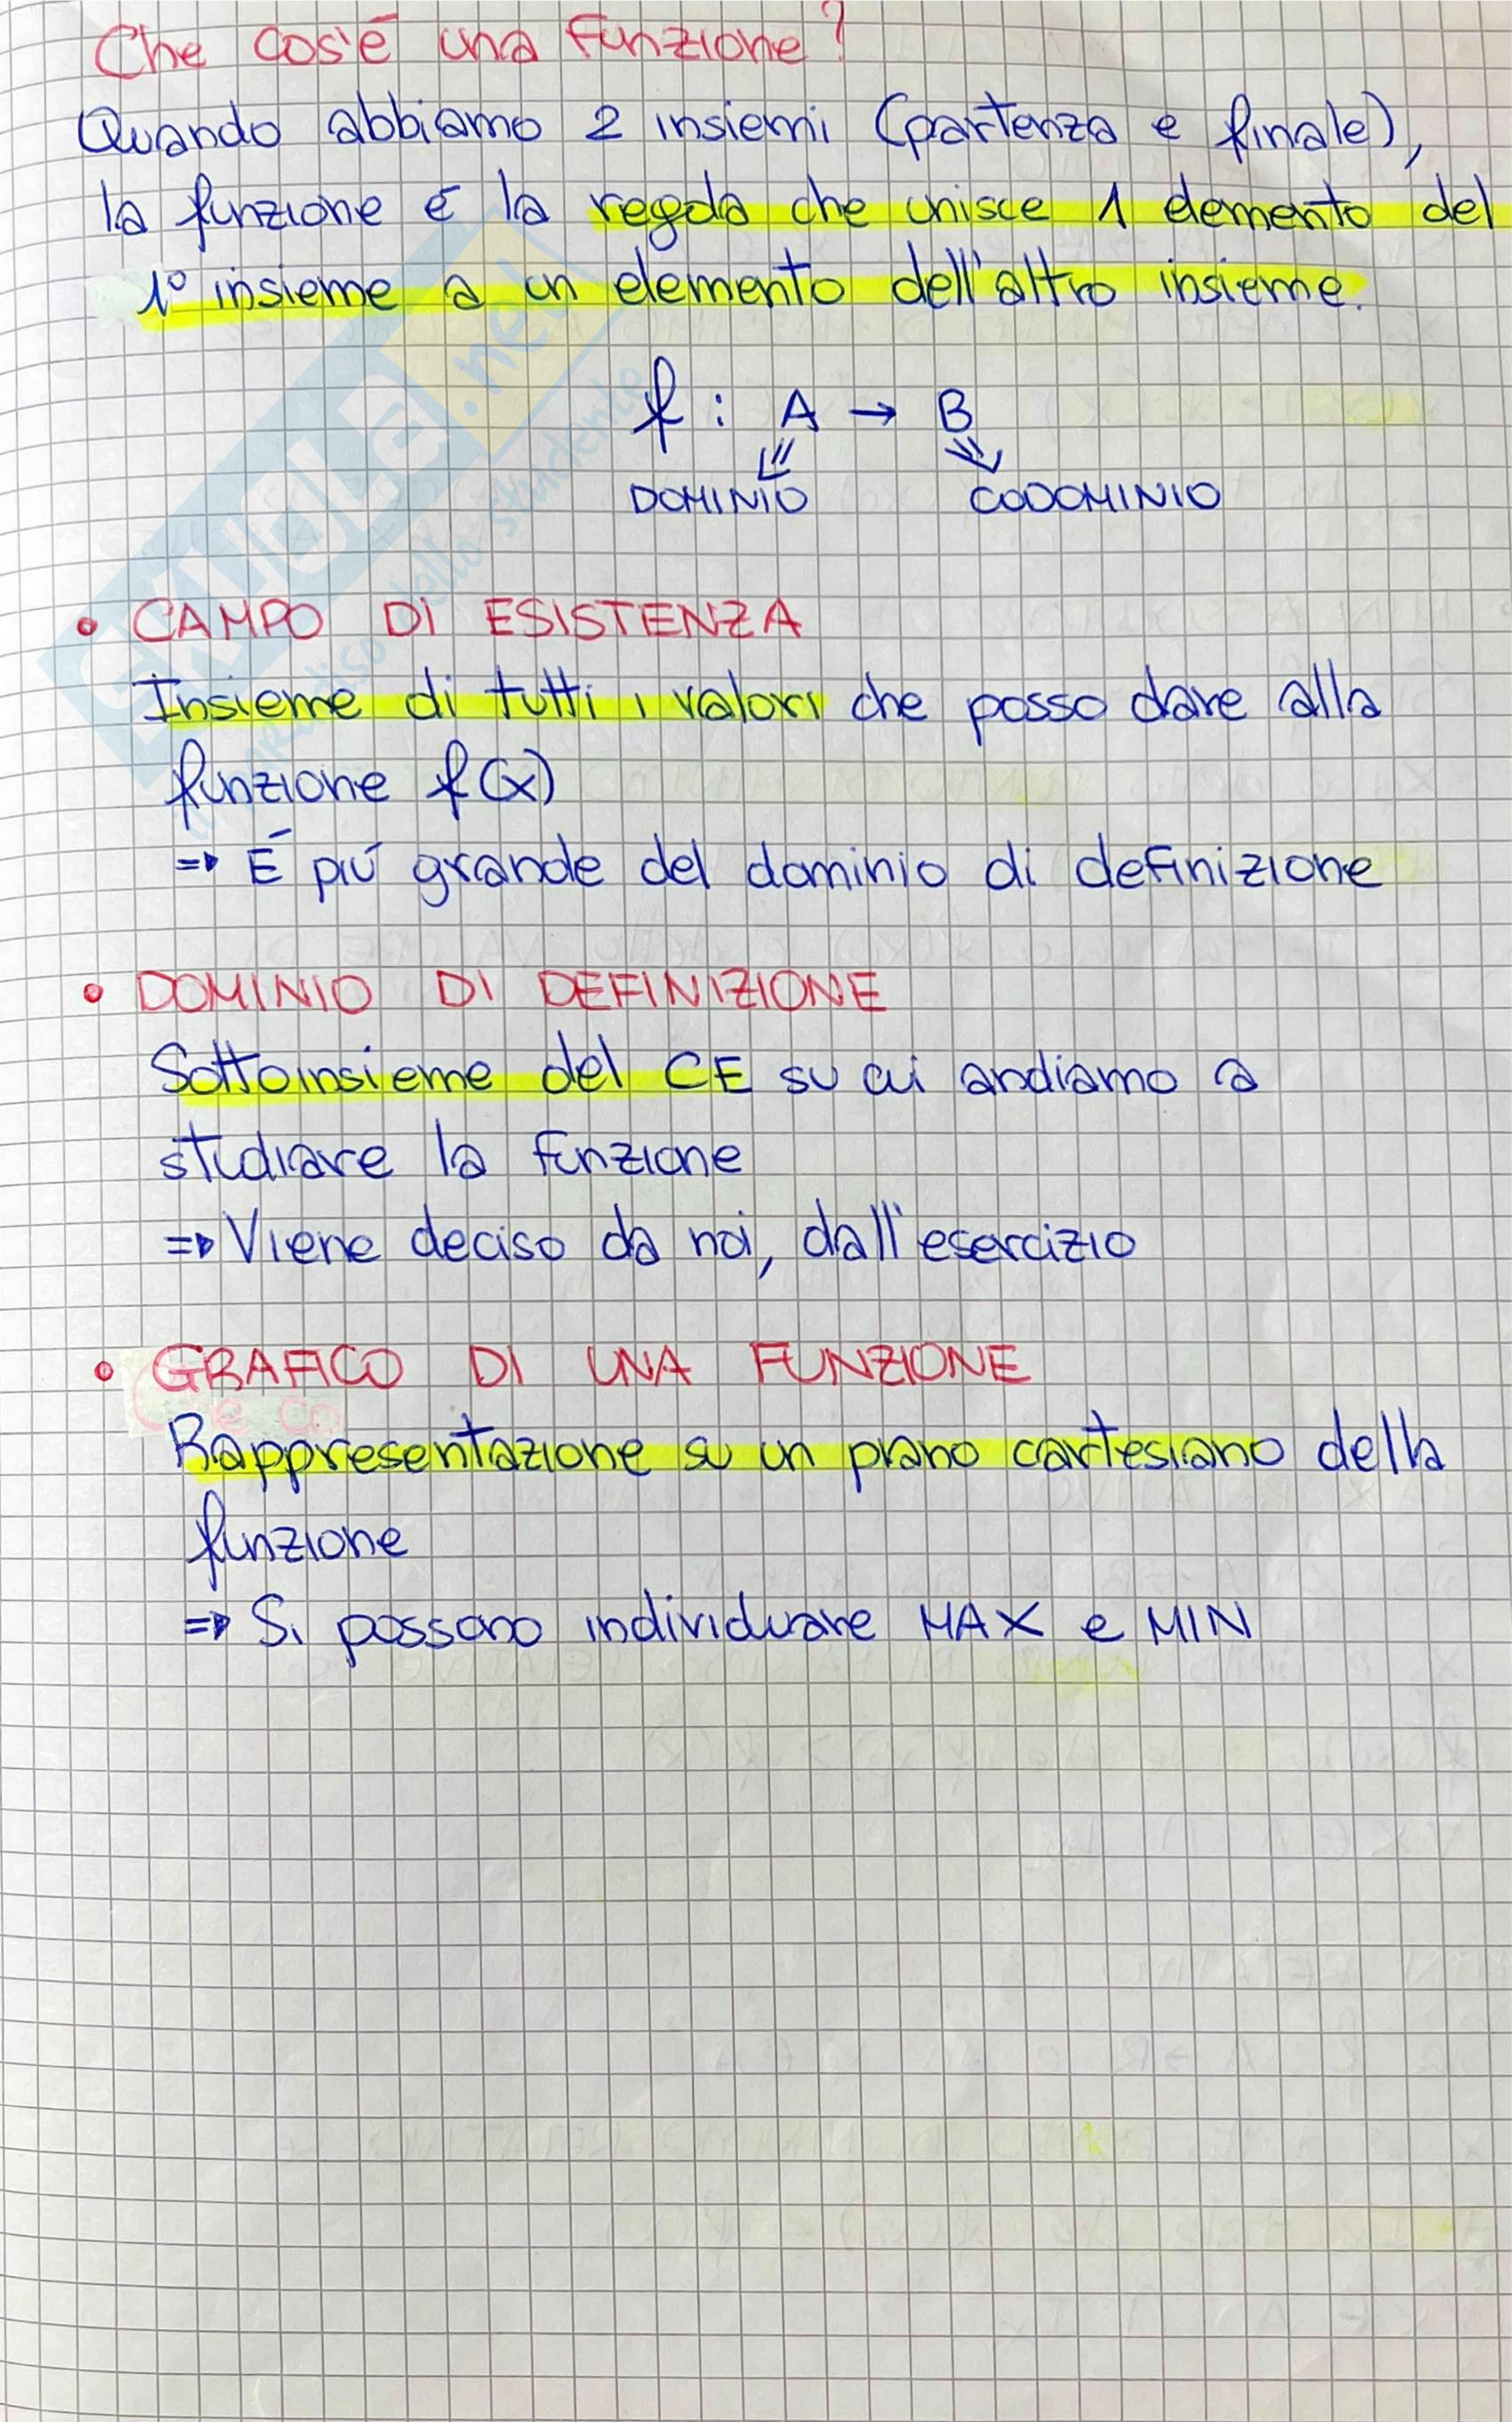 Che cos'è una funzione?
Quando abbiamo 2 insiemi (partenza e finale),
la funzione è la regola che unisce 1 elemento del
1° insieme a un elemento dell'altro insieme.
f : A → B
DOMINIO CODOMINIO
• CAMPO DI ESISTENZA
Insieme di tutti i valori che posso dare alla
funzione f(x)
⇒ È più grande del dominio di definizione
• DOMINIO DI DEFINIZIONE
Sottoinsieme del CE su cui andiamo a
studiare la funzione
⇒ Viene deciso da noi, dall'esercizio
• GRAFICO DI UNA FUNZIONE
Rappresentazione su un piano cartesiano della
funzione
⇒ Si possono individuare MAX e MIN
SKUOLA.net
il paradiso dello studente